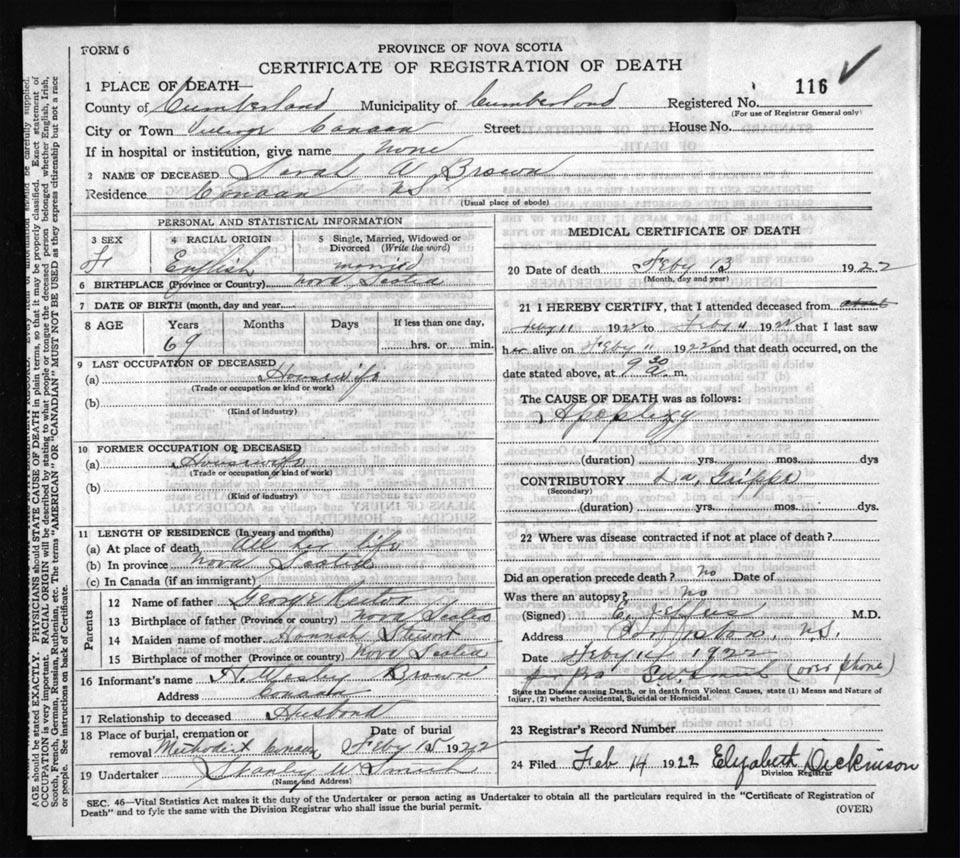 FORM 6
PROVINCE OF NOVA SCOTIA
CERTIFICATE OF REGISTRATION OF DEATH
1 PLACE OF DEATH—
116 ✓
County of Cumberland Municipality of Cumberland Registered No.
(For use of Registrar General only)
City or Town Village Canaan Street House No.
If in hospital or institution, give name none
2 NAME OF DECEASED Sarah W Brown
Residence Canaan NS
(Usual place of abode)
PERSONAL AND STATISTICAL INFORMATION
3 SEX 4 RACIAL ORIGIN 5 Single, Married, Widowed or Divorced (Write the word)
F English married
6 BIRTHPLACE (Province or Country) Nova Scotia
7 DATE OF BIRTH (month, day and year)
8 AGE Years Months Days If less than one day,
69 hrs. or min.
9 LAST OCCUPATION OF DECEASED
(a) Housewife
(Trade or occupation or kind of work)
(b)
(Kind of industry)
10 FORMER OCCUPATION OF DECEASED
(a) Housewife
(Trade or occupation or kind of work)
(b)
(Kind of industry)
11 LENGTH OF RESIDENCE (In years and months)
(a) At place of death All her life
(b) In province Nova Scotia
(c) In Canada (if an immigrant)
Parents
12 Name of father George Rector
13 Birthplace of father (Province or country) Nova Scotia
14 Maiden name of mother Hannah Stewart
15 Birthplace of mother (Province or country) Nova Scotia
16 Informant's name H. Wesley Brown
Address Canaan
17 Relationship to deceased Husband
18 Place of burial, cremation or Date of burial
removal Methodist Canaan Feby 15 1922
19 Undertaker Stanley W Smith
(Name and Address)
MEDICAL CERTIFICATE OF DEATH
20 Date of death Feby 13 1922
(Month, day and year)
21 I HEREBY CERTIFY, that I attended deceased from about
Feby 11 1922 to Feby 11 1922 that I last saw
her alive on Feby 11 1922 and that death occurred, on the
date stated above, at 9 30 a. m.
The CAUSE OF DEATH was as follows:
Apoplexy
(duration) yrs. mos. dys
CONTRIBUTORY La Grippe
(Secondary)
(duration) yrs. mos. dys.
22 Where was disease contracted if not at place of death?
Did an operation precede death? no Date of
Was there an autopsy? no
(Signed) M.D.
Address N.S.
Date Feby 14 1922
(over phone)
State the Disease causing Death, or in death from Violent Causes, state (1) Means and Nature of
Injury, (2) whether Accidental, Suicidal or Homicidal.
23 Registrar's Record Number
24 Filed Feb 14 1922 Elizabeth Dickinson
Division Registrar
SEC. 46—Vital Statistics Act makes it the duty of the Undertaker or person acting as Undertaker to obtain all the particulars required in the "Certificate of Registration of
Death" and to fyle the same with the Division Registrar who shall issue the burial permit.
(OVER)
AGE should be stated EXACTLY. PHYSICIANS should STATE CAUSE OF DEATH in plain terms, so that it may be properly classified. Exact statement of
OCCUPATION is very important. RACIAL ORIGIN will be described by stating to what people or tongue the deceased person belonged, whether English, Irish,
Scotch, French, German, Russian, Ruthenian, etc. The terms "AMERICAN" OR "CANADIAN" MUST NOT BE USED as they express citizenship but not a race
or people. See instructions on back of Certificate.